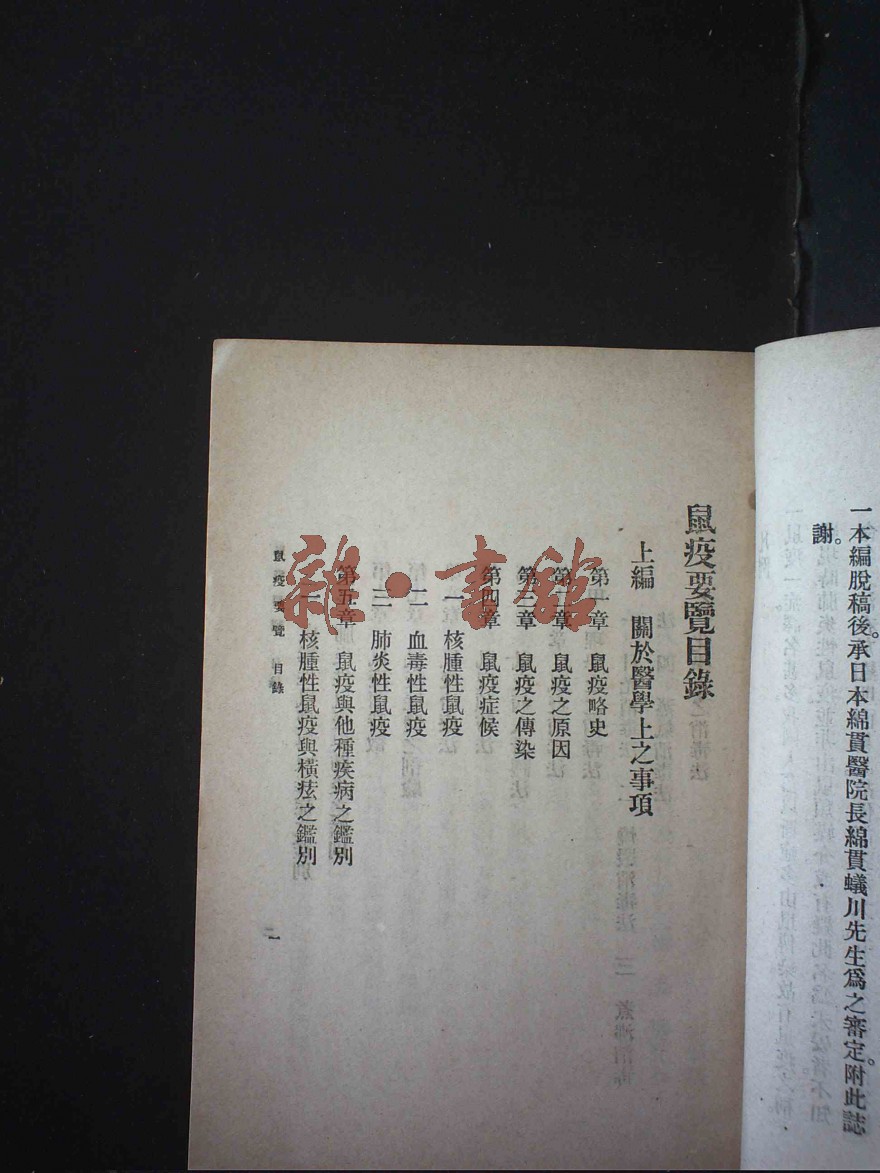 一本編脫稿後。承日本綿貫醫院長綿貫蟻川先生爲之審定。附此誌
謝。
鼠疫要覽目錄
上編　關於醫學上之事項
第一章　鼠疫略史
第二章　鼠疫之原因
第三章　鼠疫之傳染
第四章　鼠疫症候
一　核腫性鼠疫
二　血毒性鼠疫
三　肺炎性鼠疫
第五章　鼠疫與他種疾病之鑑別
一　核腫性鼠疫與橫痃之鑑別
鼠疫要覽　目錄
一
雜·書館